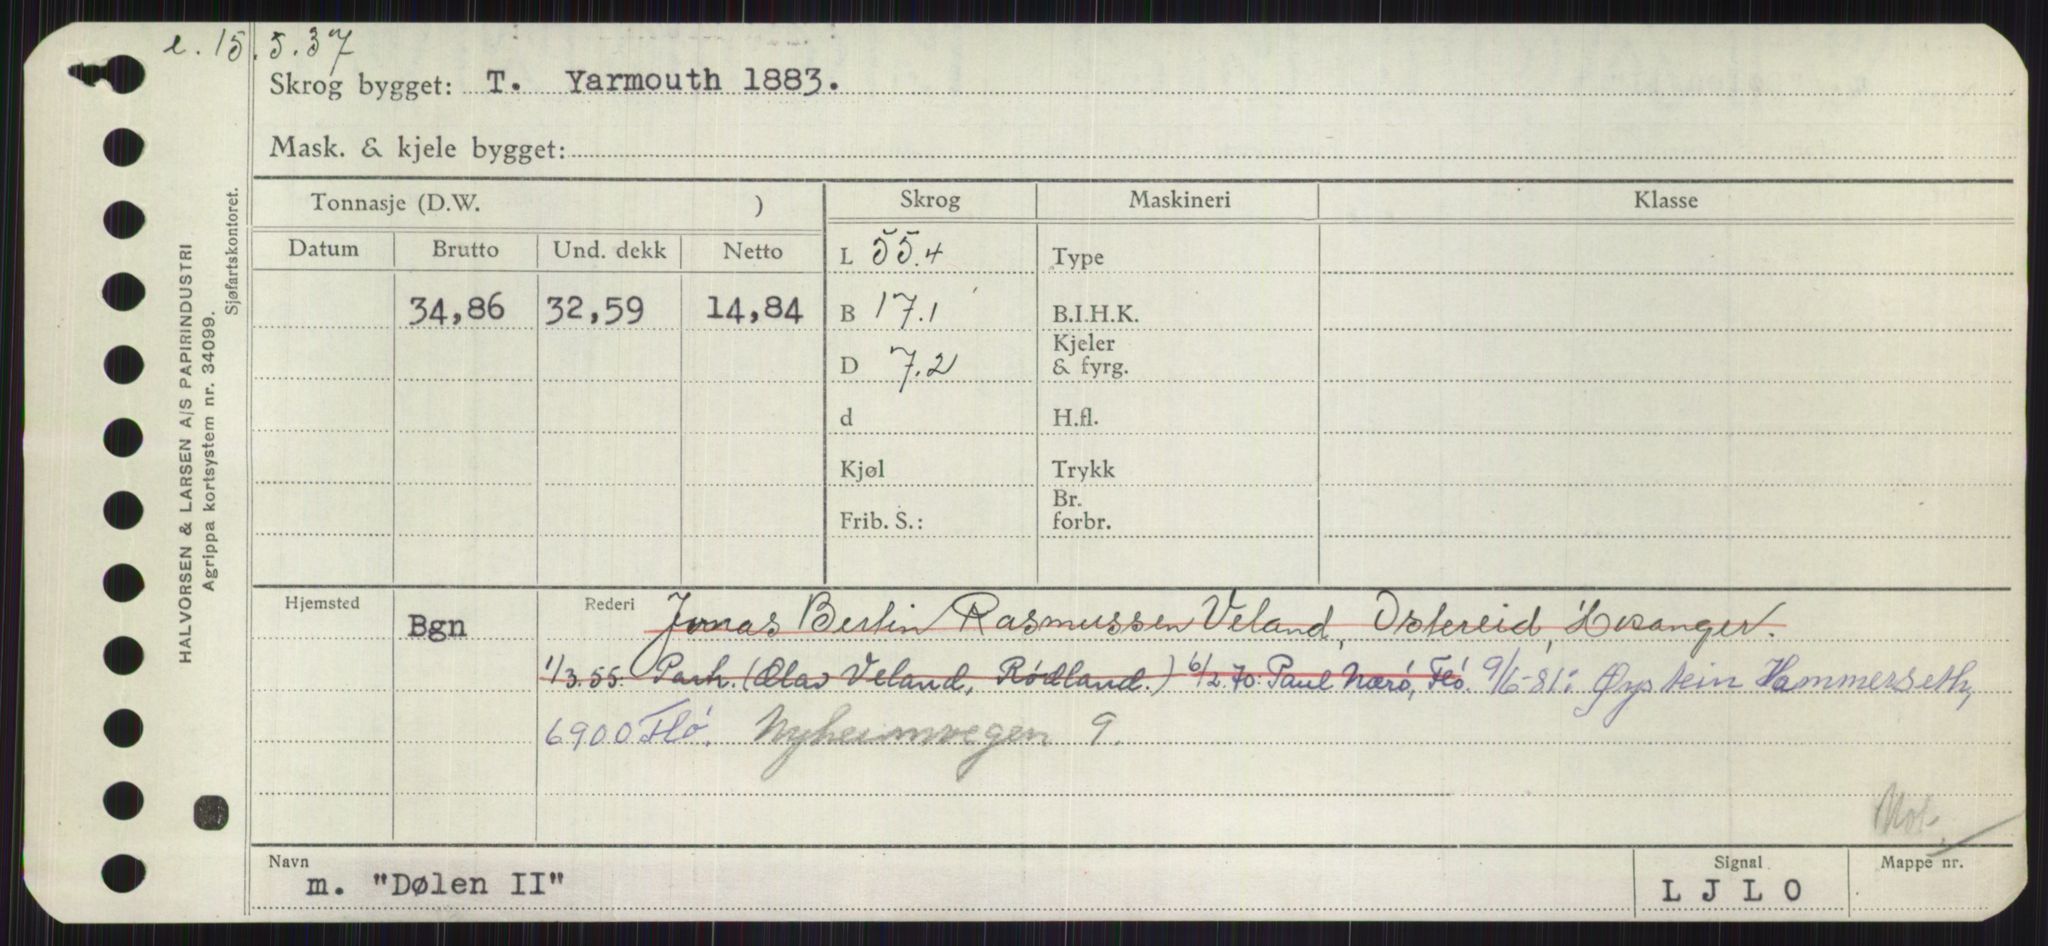 e. 15.5.37
Skrog bygget: T. Yarmouth 1883.
Mask. & kjele bygget:
HALVORSEN & LARSEN A/S PAPIRINDUSTRI
Agrippa kortsystem nr. 34099.
Sjøfartskontoret.
Tonnasje (D.W. ) Skrog Maskineri Klasse
Datum Brutto Und. dekk Netto
L 55.4 Type
34,86 32,59 14,84 B 17.1 B.I.H.K.
D 7.2 Kjeler & fyrg.
d H.fl.
Kjøl Trykk
Frib. S.: Br. forbr.
Hjemsted Bgn Rederi Jonas Bertin Rasmussen Veland, Ostereid, Hosanger.
1/3.55: Parh. (Olav Veland, Rödland.) 6/2.70: Paul Nærö, Flö. 9/6-81: Øystein Hammerseth,
6900 Flö. Nyheimvegen 9.
Mot.
Navn Signal Mappe nr.
m. "Dølen II" L J L O